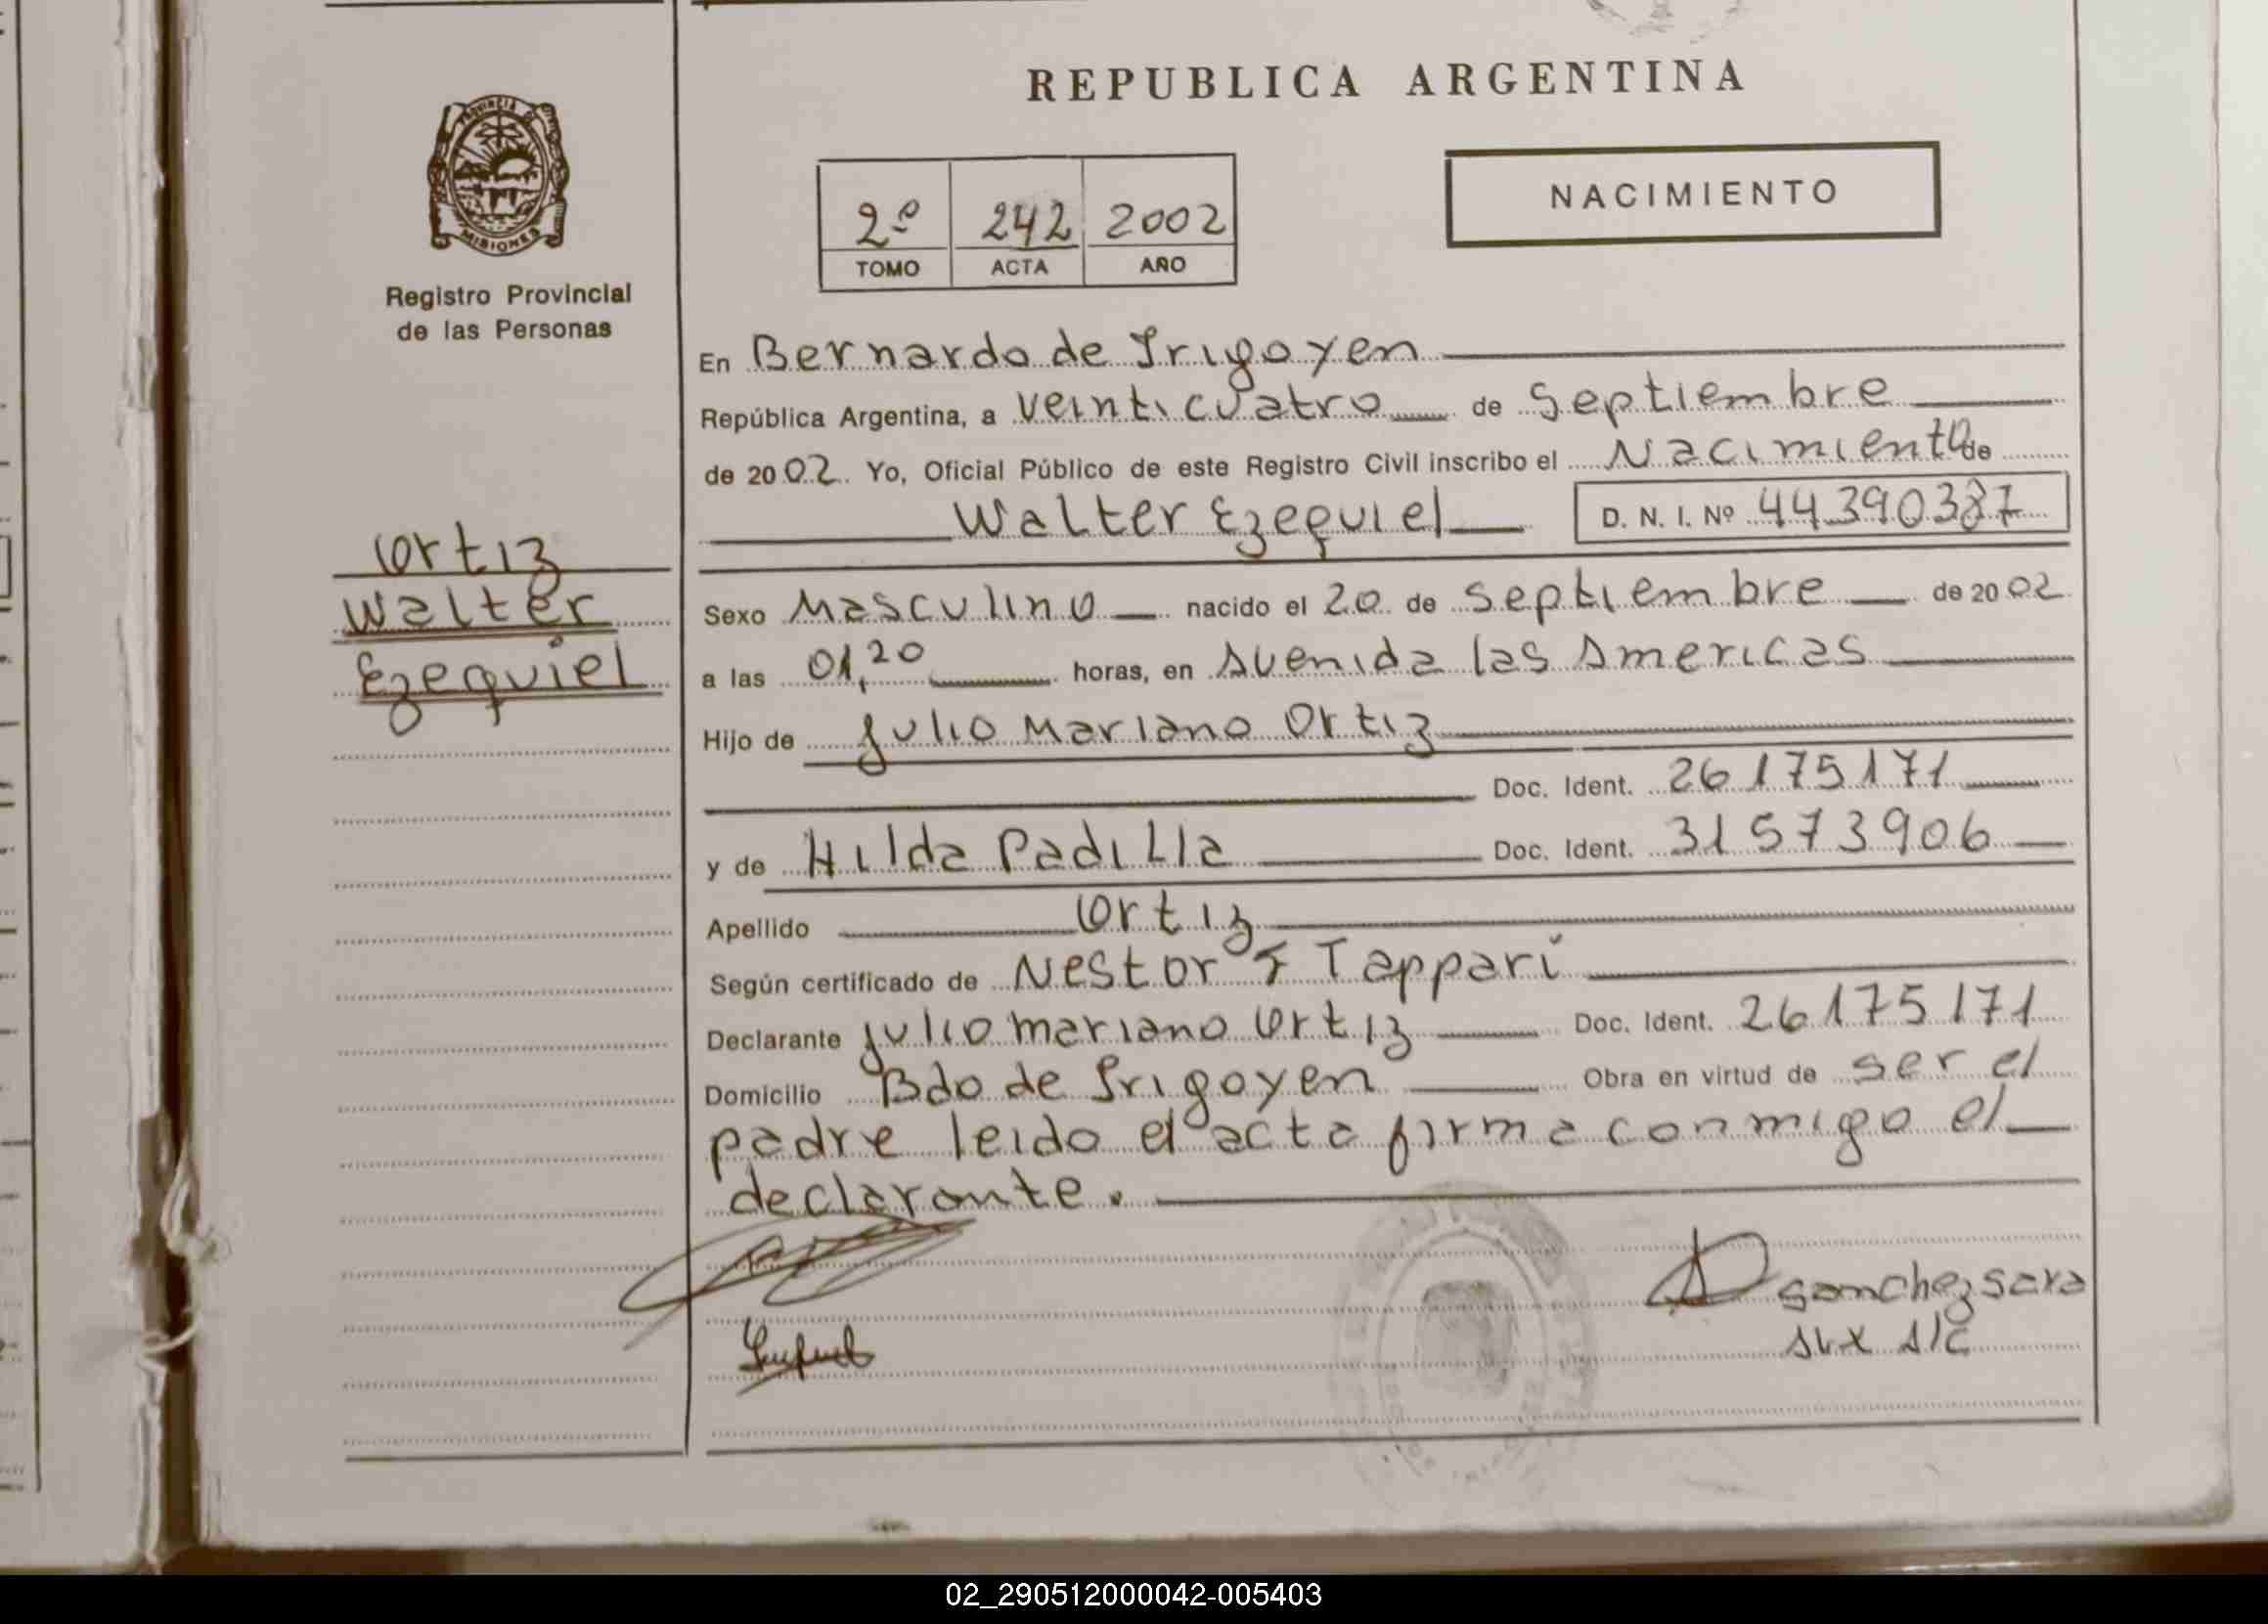 REPUBLICA ARGENTINA
PROVINCIA DE
MISIONES
Registro Provincial
de las Personas
2º 242 2002
TOMO ACTA AÑO
NACIMIENTO
En Bernardo de Irigoyen
República Argentina, a veinticuatro de Septiembre
de 2002. Yo, Oficial Público de este Registro Civil inscribo el Nacimiento de
Walter Ezequiel D. N. I. Nº 44390387
Ortiz
Walter
Ezequiel
Sexo Masculino nacido el 20 de Septiembre de 2002
a las 01,20 horas, en Avenida las Americas
Hijo de Julio Mariano Ortiz
Doc. Ident. 26175171
y de Hilda Padilla Doc. Ident. 31573906
Apellido Ortiz
Según certificado de Nestor F Tappari
Declarante Julio mariano Ortiz Doc. Ident. 26175171
Domicilio Bdo de Irigoyen Obra en virtud de ser el
padre leido el acta firma conmigo el
declarante.
Sanchez Sara
Aux A/C
02_290512000042-005403